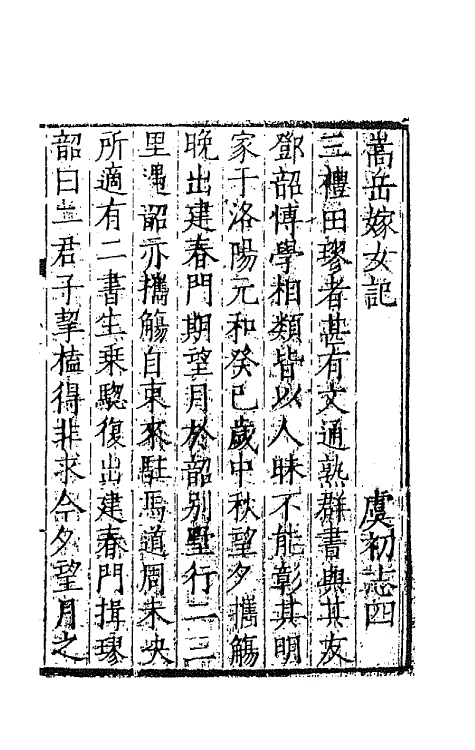 嵩岳嫁女記　虞初志四
三禮田璆者甚有文通熟群書與其友
鄧韶博學相類皆以人昧不能彰其明
家于洛陽元和癸巳歲中秋望夕攜觴
晚出建春門期望月於韶别墅行二三
里遇韶亦攜觴自東來駐馬道周未決
所適有二書生乘驄復出建春門揖璆
韶曰二君子挈榼得非求今夕望月之